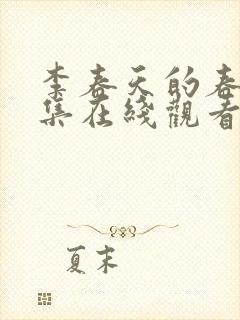 李春天的春
集在綫觀看
夏末